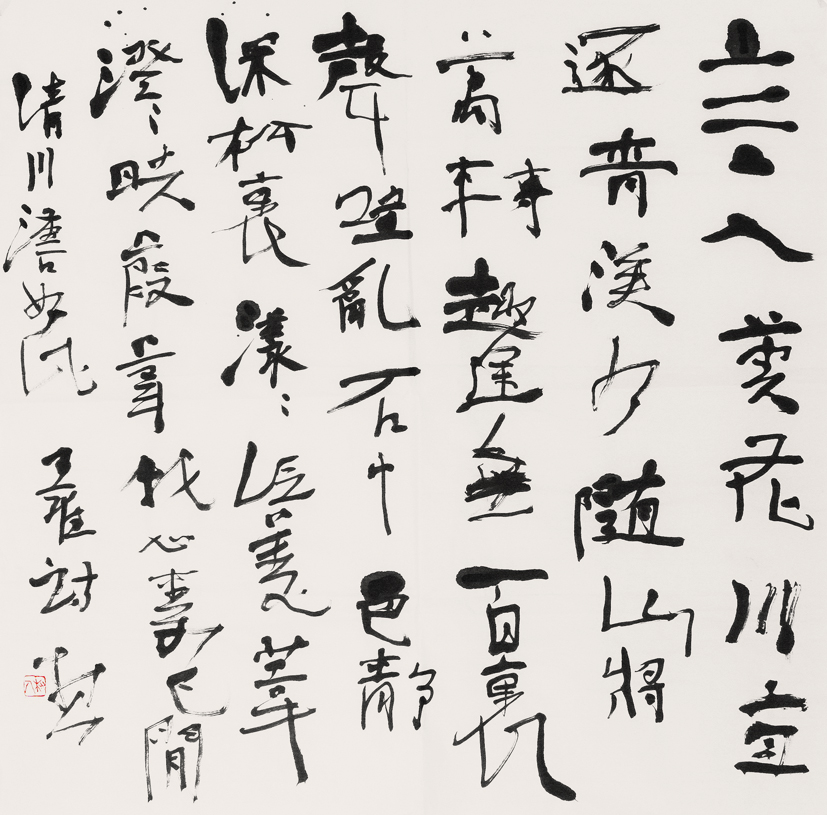 言入黃花川每
逐青溪水隨山將
萬轉趣途無百裏
聲喧亂石中色靜
深松裏漾〻泛菱荇
澄〻映葭葦我心素已閒
清川澹如此王維詩